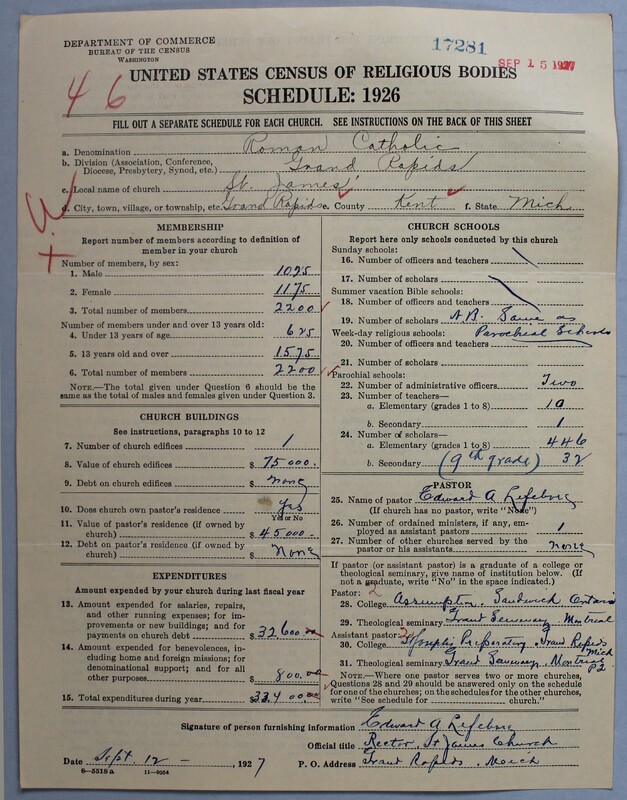 DEPARTMENT OF COMMERCE
BUREAU OF THE CENSUS
WASHINGTON
17281
SEP 15 1927
46
UNITED STATES CENSUS OF RELIGIOUS BODIES
SCHEDULE: 1926
FILL OUT A SEPARATE SCHEDULE FOR EACH CHURCH. SEE INSTRUCTIONS ON THE BACK OF THIS SHEET
a. Denomination Roman Catholic
b. Division (Association, Conference, Diocese, Presbytery, Synod, etc.) Grand Rapids
c. Local name of church St. James'
d. City, town, village, or township, etc. Grand Rapids e. County Kent f. State Mich
MEMBERSHIP
Report number of members according to definition of
member in your church
Number of members, by sex:
1. Male 1025
2. Female 1175
3. Total number of members 2200
Number of members under and over 13 years old:
4. Under 13 years of age 625
5. 13 years old and over 1575
6. Total number of members 2200
NOTE.—The total given under Question 6 should be
same as the total of males and females given under Question 3.
CHURCH BUILDINGS
See instructions, paragraphs 10 to 12
7. Number of church edifices 1
8. Value of church edifices $ 75000.
9. Debt on church edifices $ none
10. Does church own pastor's residence? Yes
Yes or No
11. Value of pastor's residence (if owned by
church) $ 45000.
12. Debt on pastor's residence (if owned by
church) $ None
EXPENDITURES
Amount expended by your church during last fiscal year
13. Amount expended for salaries, repairs,
and other running expenses; for im-
provements or new buildings; and for
payments on church debt $ 32600.00
14. Amount expended for benevolences,
including home and foreign missions; for
denominational support; and for all
other purposes $ 800.00
15. Total expenditures during year $ 33400.00
CHURCH SCHOOLS
Report here only schools conducted by this church
Sunday schools:
16. Number of officers and teachers
17. Number of scholars
Summer vacation Bible schools:
18. Number of officers and teachers
19. Number of scholars N.B. Same as
Week-day religious schools: Parochial Schools
20. Number of officers and teachers
21. Number of scholars
Parochial schools:
22. Number of administrative officers Two
23. Number of teachers—
a. Elementary (grades 1 to 8) 10
b. Secondary 1
24. Number of scholars—
a. Elementary (grades 1 to 8) 446
b. Secondary (9th grade) 32
PASTOR
25. Name of pastor Edward A Lefebvre
(If church has no pastor, write "None")
26. Number of ordained ministers, if any, em-
ployed as assistant pastors 1
27. Number of other churches served by the
pastor or his assistants none
If pastor (or assistant pastor) is a graduate of a college or
theological seminary, give name of institution below. (If
not a graduate, write "No" in the space indicated.)
Pastor: 2
28. College Assumption, Sandwich Ontario
29. Theological seminary Grand Seminary Montreal
Assistant pastor:
30. College St Joseph's Preparatory, Grand Rapids Mich
31. Theological seminary Grand Seminary, Montreal
NOTE.—Where one pastor serves two or more churches,
Questions 28 and 29 should be answered only on the schedule
for one of the churches; on the schedules for the other churches,
write "See schedule for church."
Signature of person furnishing information Edward A Lefebvre
Official title Rector, St James Church
Date Sept. 12, 1927 P. O. Address Grand Rapids, Mich
8—5518a 11—9054